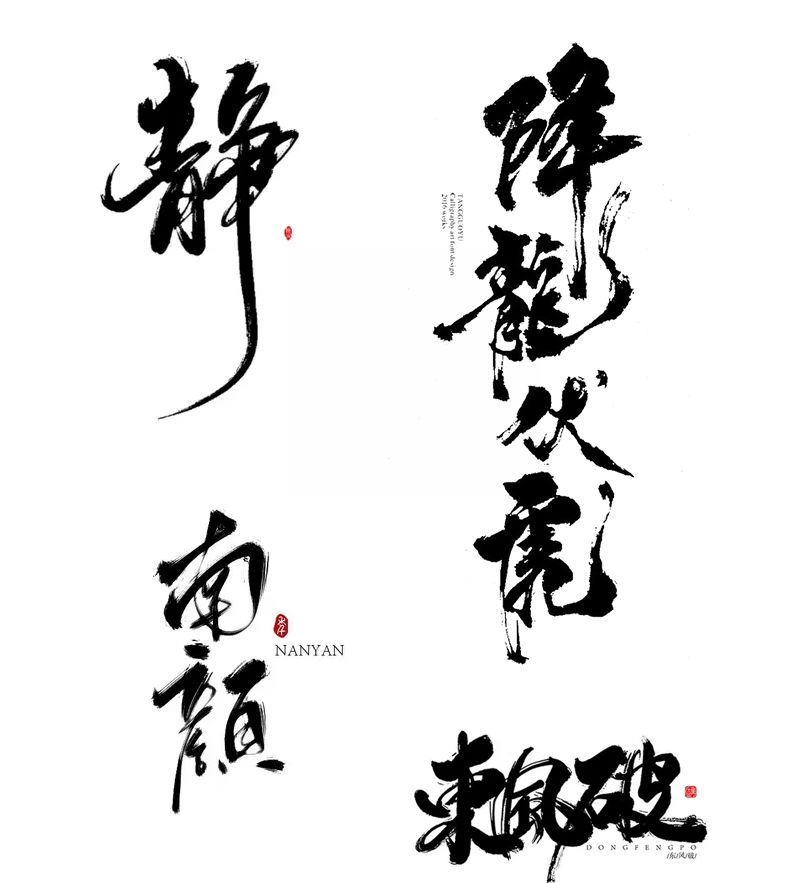 静
降龍伏虎
TANGGUOYU
Calligraphy art font design
2016 works
南顏
NANYAN
東風破
DONGFENGPO
/东/风/破/